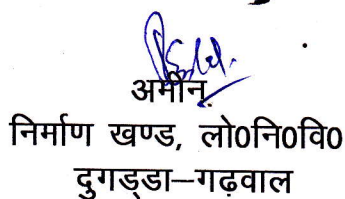 अमीन
निर्माण खण्ड, लो0नि0वि0
दुगड्डा–गढ़वाल